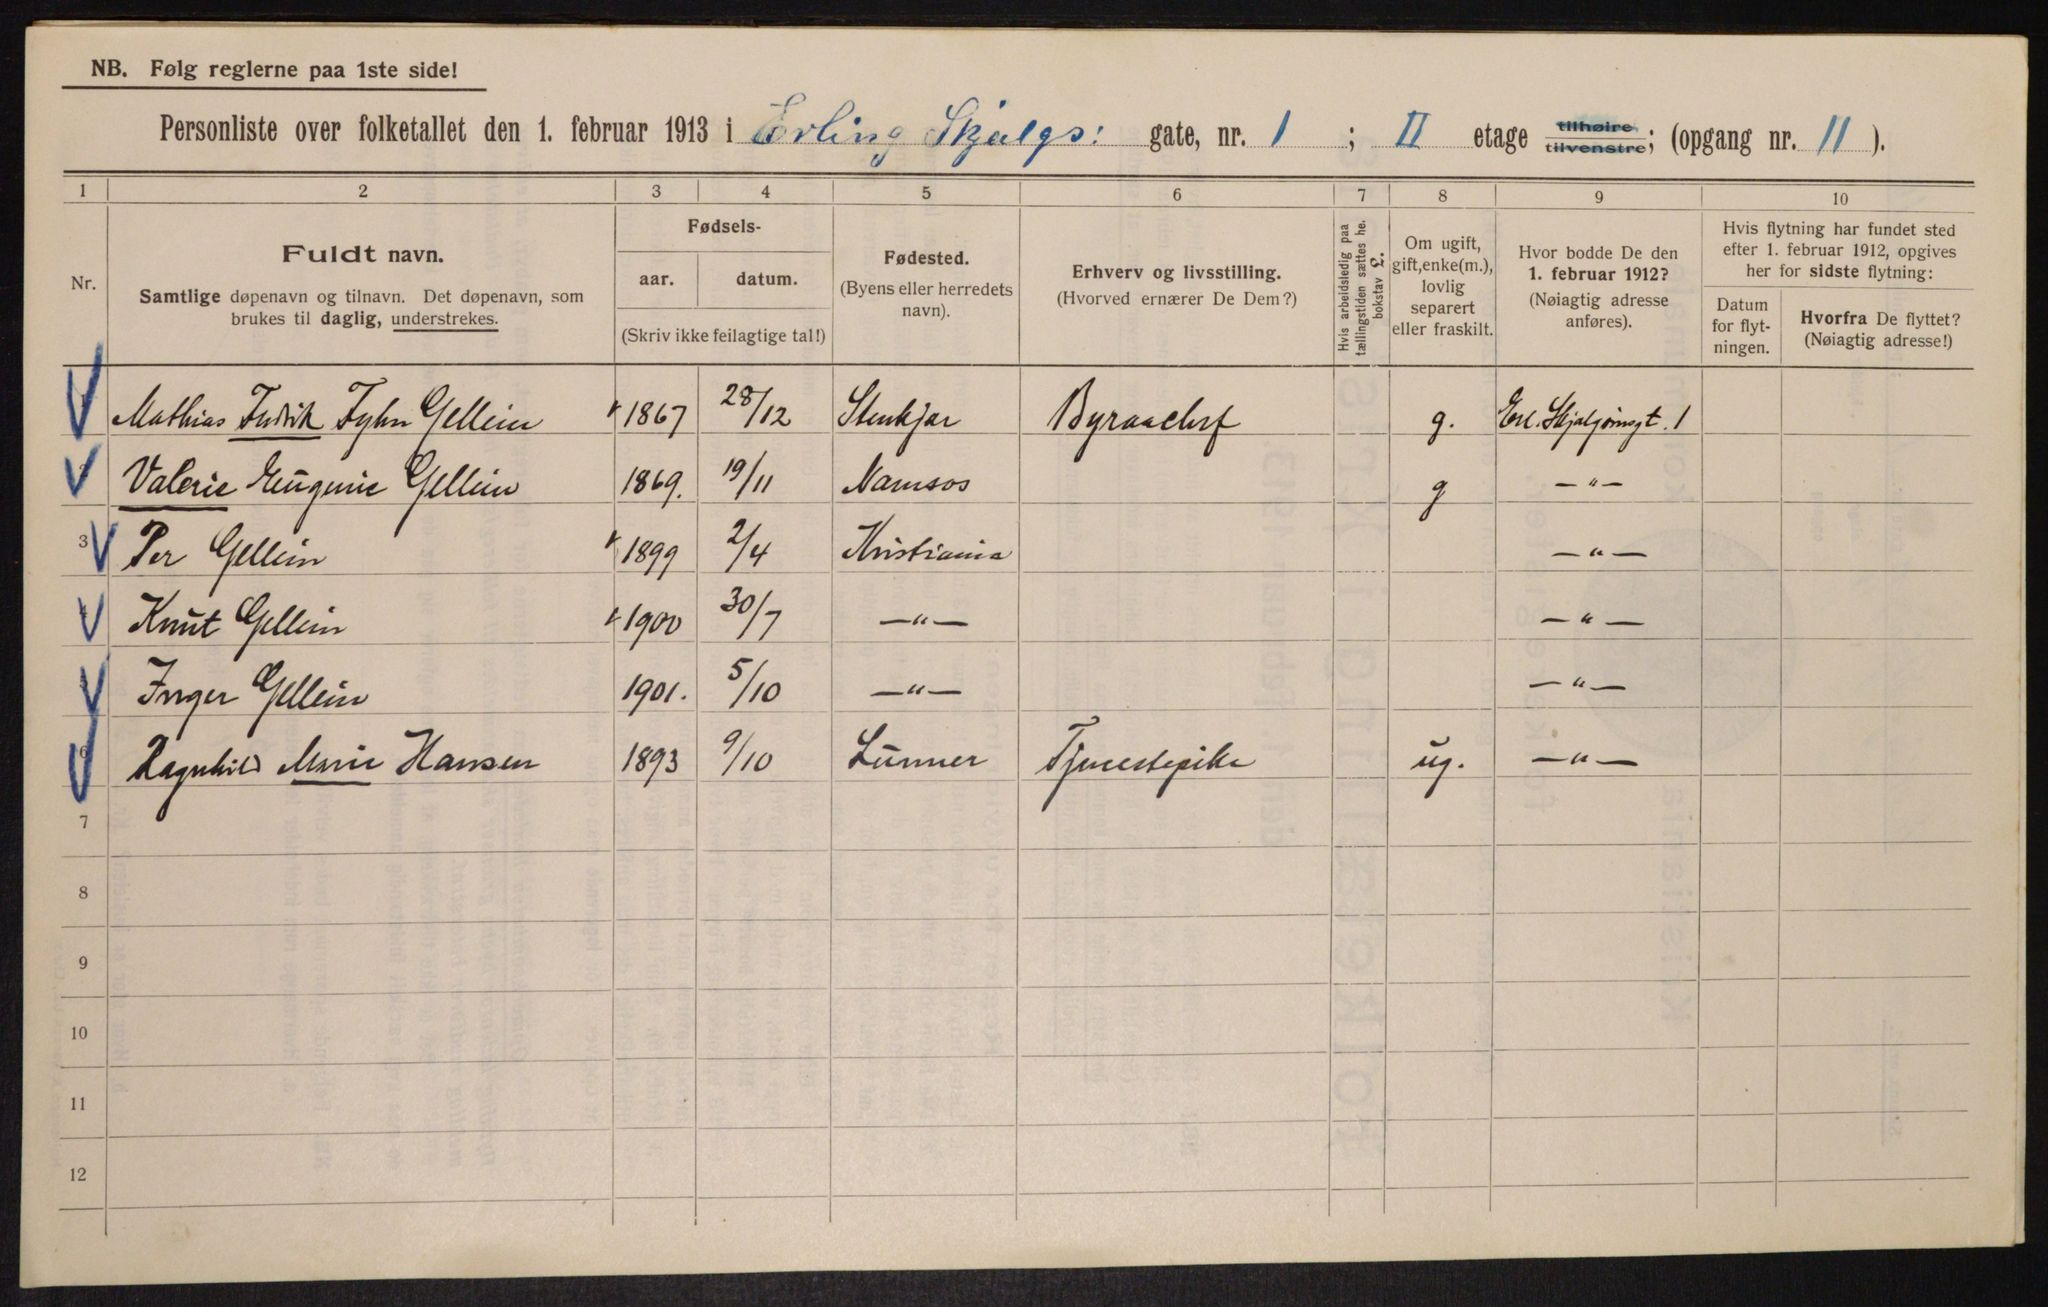 NB. Følg reglerne paa 1ste side!
Personliste over folketallet den 1. februar 1913 i Erling Skjalgs: gate, nr. 1 ; II etage tilhøire tilvenstre; (opgang nr. 11 ).
1 2 3 4 5 6 7 8 9 10
Nr.
Fuldt navn.
Samtlige døpenavn og tilnavn. Det døpenavn, som
brukes til daglig, understrekes.
Fødsels-
aar. datum.
(Skriv ikke feilagtige tal!)
Fødested.
(Byens eller herredets
navn).
Erhverv og livsstilling.
(Hvorved ernærer De Dem?)
Hvis arbeidsledig paa
tællingstiden sættes he.
bokstav L.
Om ugift,
gift, enke(m.),
lovlig
separert
eller fraskilt.
Hvor bodde De den
1. februar 1912?
(Nøiagtig adresse
anføres).
Hvis flytning har fundet sted
efter 1. februar 1912, opgives
her for sidste flytning:
Datum
for flyt-
ningen.
Hvorfra De flyttet?
(Nøiagtig adresse!)
Mathias Fredrik Fyhn Gellein 1867 28/12 Stenkjær Byraachef g. Erl. Skjalgsønsgt. 1
Valerie Eugenie Gellein 1869. 19/11 Namsos g —"—
3 Per Gellein 1899 2/4 Kristiania —"—
4 Knut Gellein 1900 30/7 —"— —"—
5 Inger Gellein 1901. 5/10 —"— —"—
6 Ragnhild Marie Hansen 1893 9/10 Lunner Tjenestepike ug. —"—
7
8
9
10
11
12